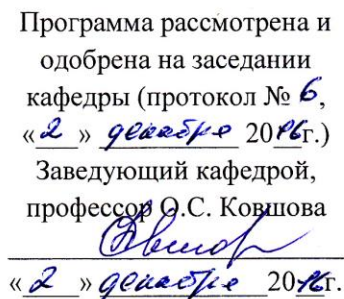 Программа рассмотрена и
одобрена на заседании
кафедры (протокол № 6,
«2» декабря 2016г.)
Заведующий кафедрой,
профессор О.С. Ковшова
«2» декабря 2016г.